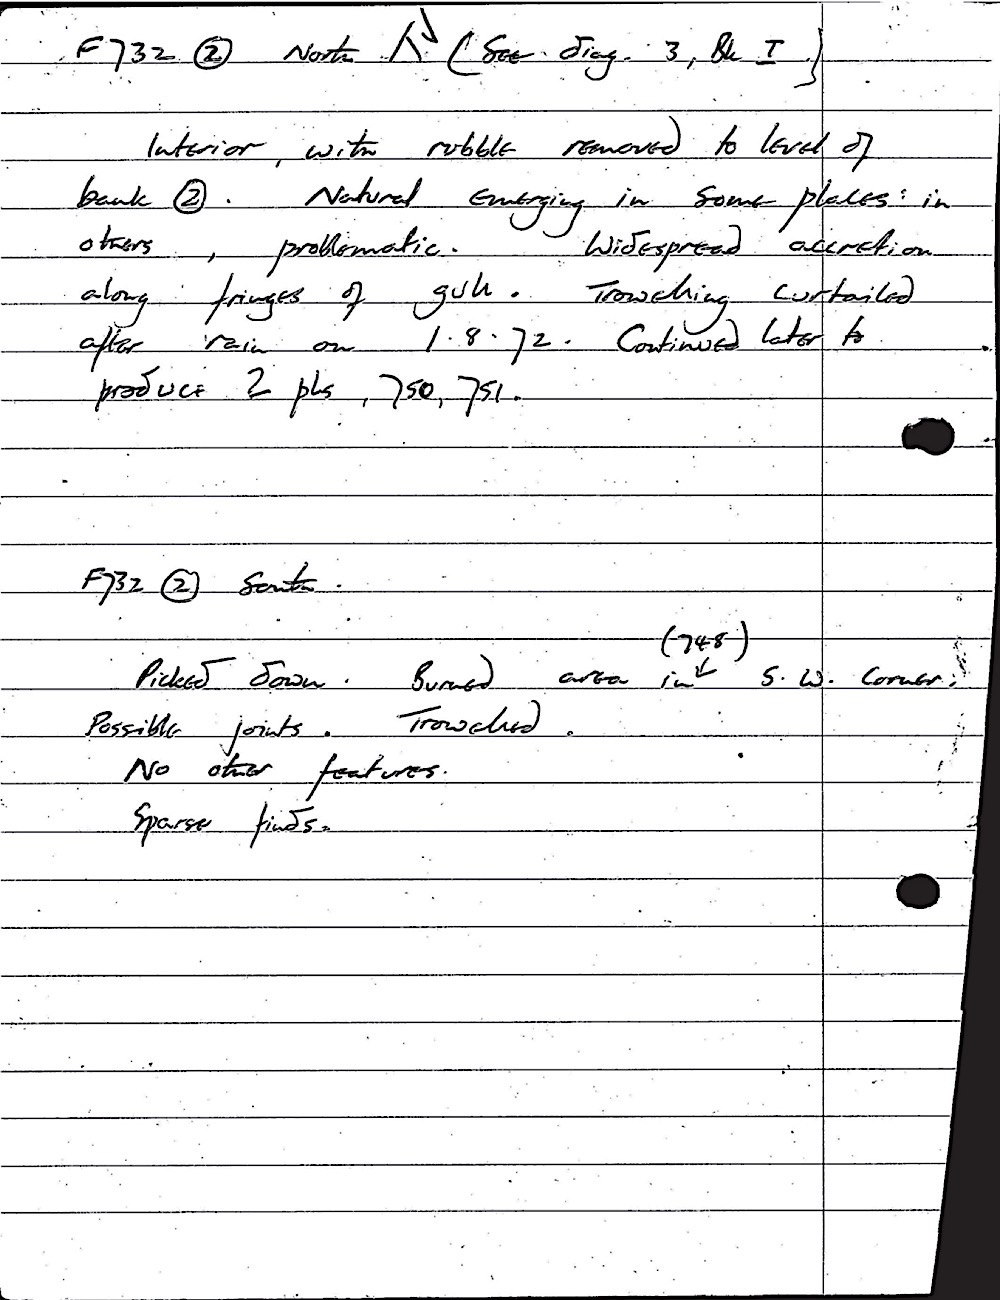 F732 ② North (See diag. 3, Bk I)
Interior, with rubble removed to level of
bank ②. Natural emerging in some places: in
others, problematic. Widespread accretion
along fringes of gull. Trowelling curtailed
after rain on 1.8.72. Continued later to
produce 2 phs, 750, 751.
F732 ② South.
(748)
Picked down. Burned area in S.W. Corner.
Possible joints. Trowelled.
No other features.
Sparse finds.